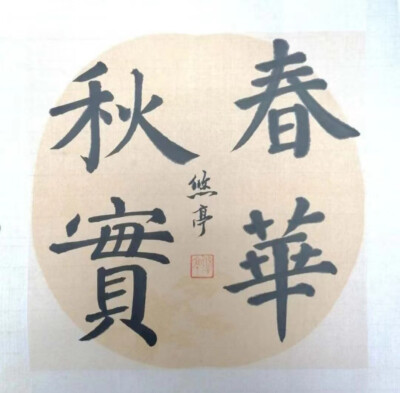 春華
秋實
悠亭